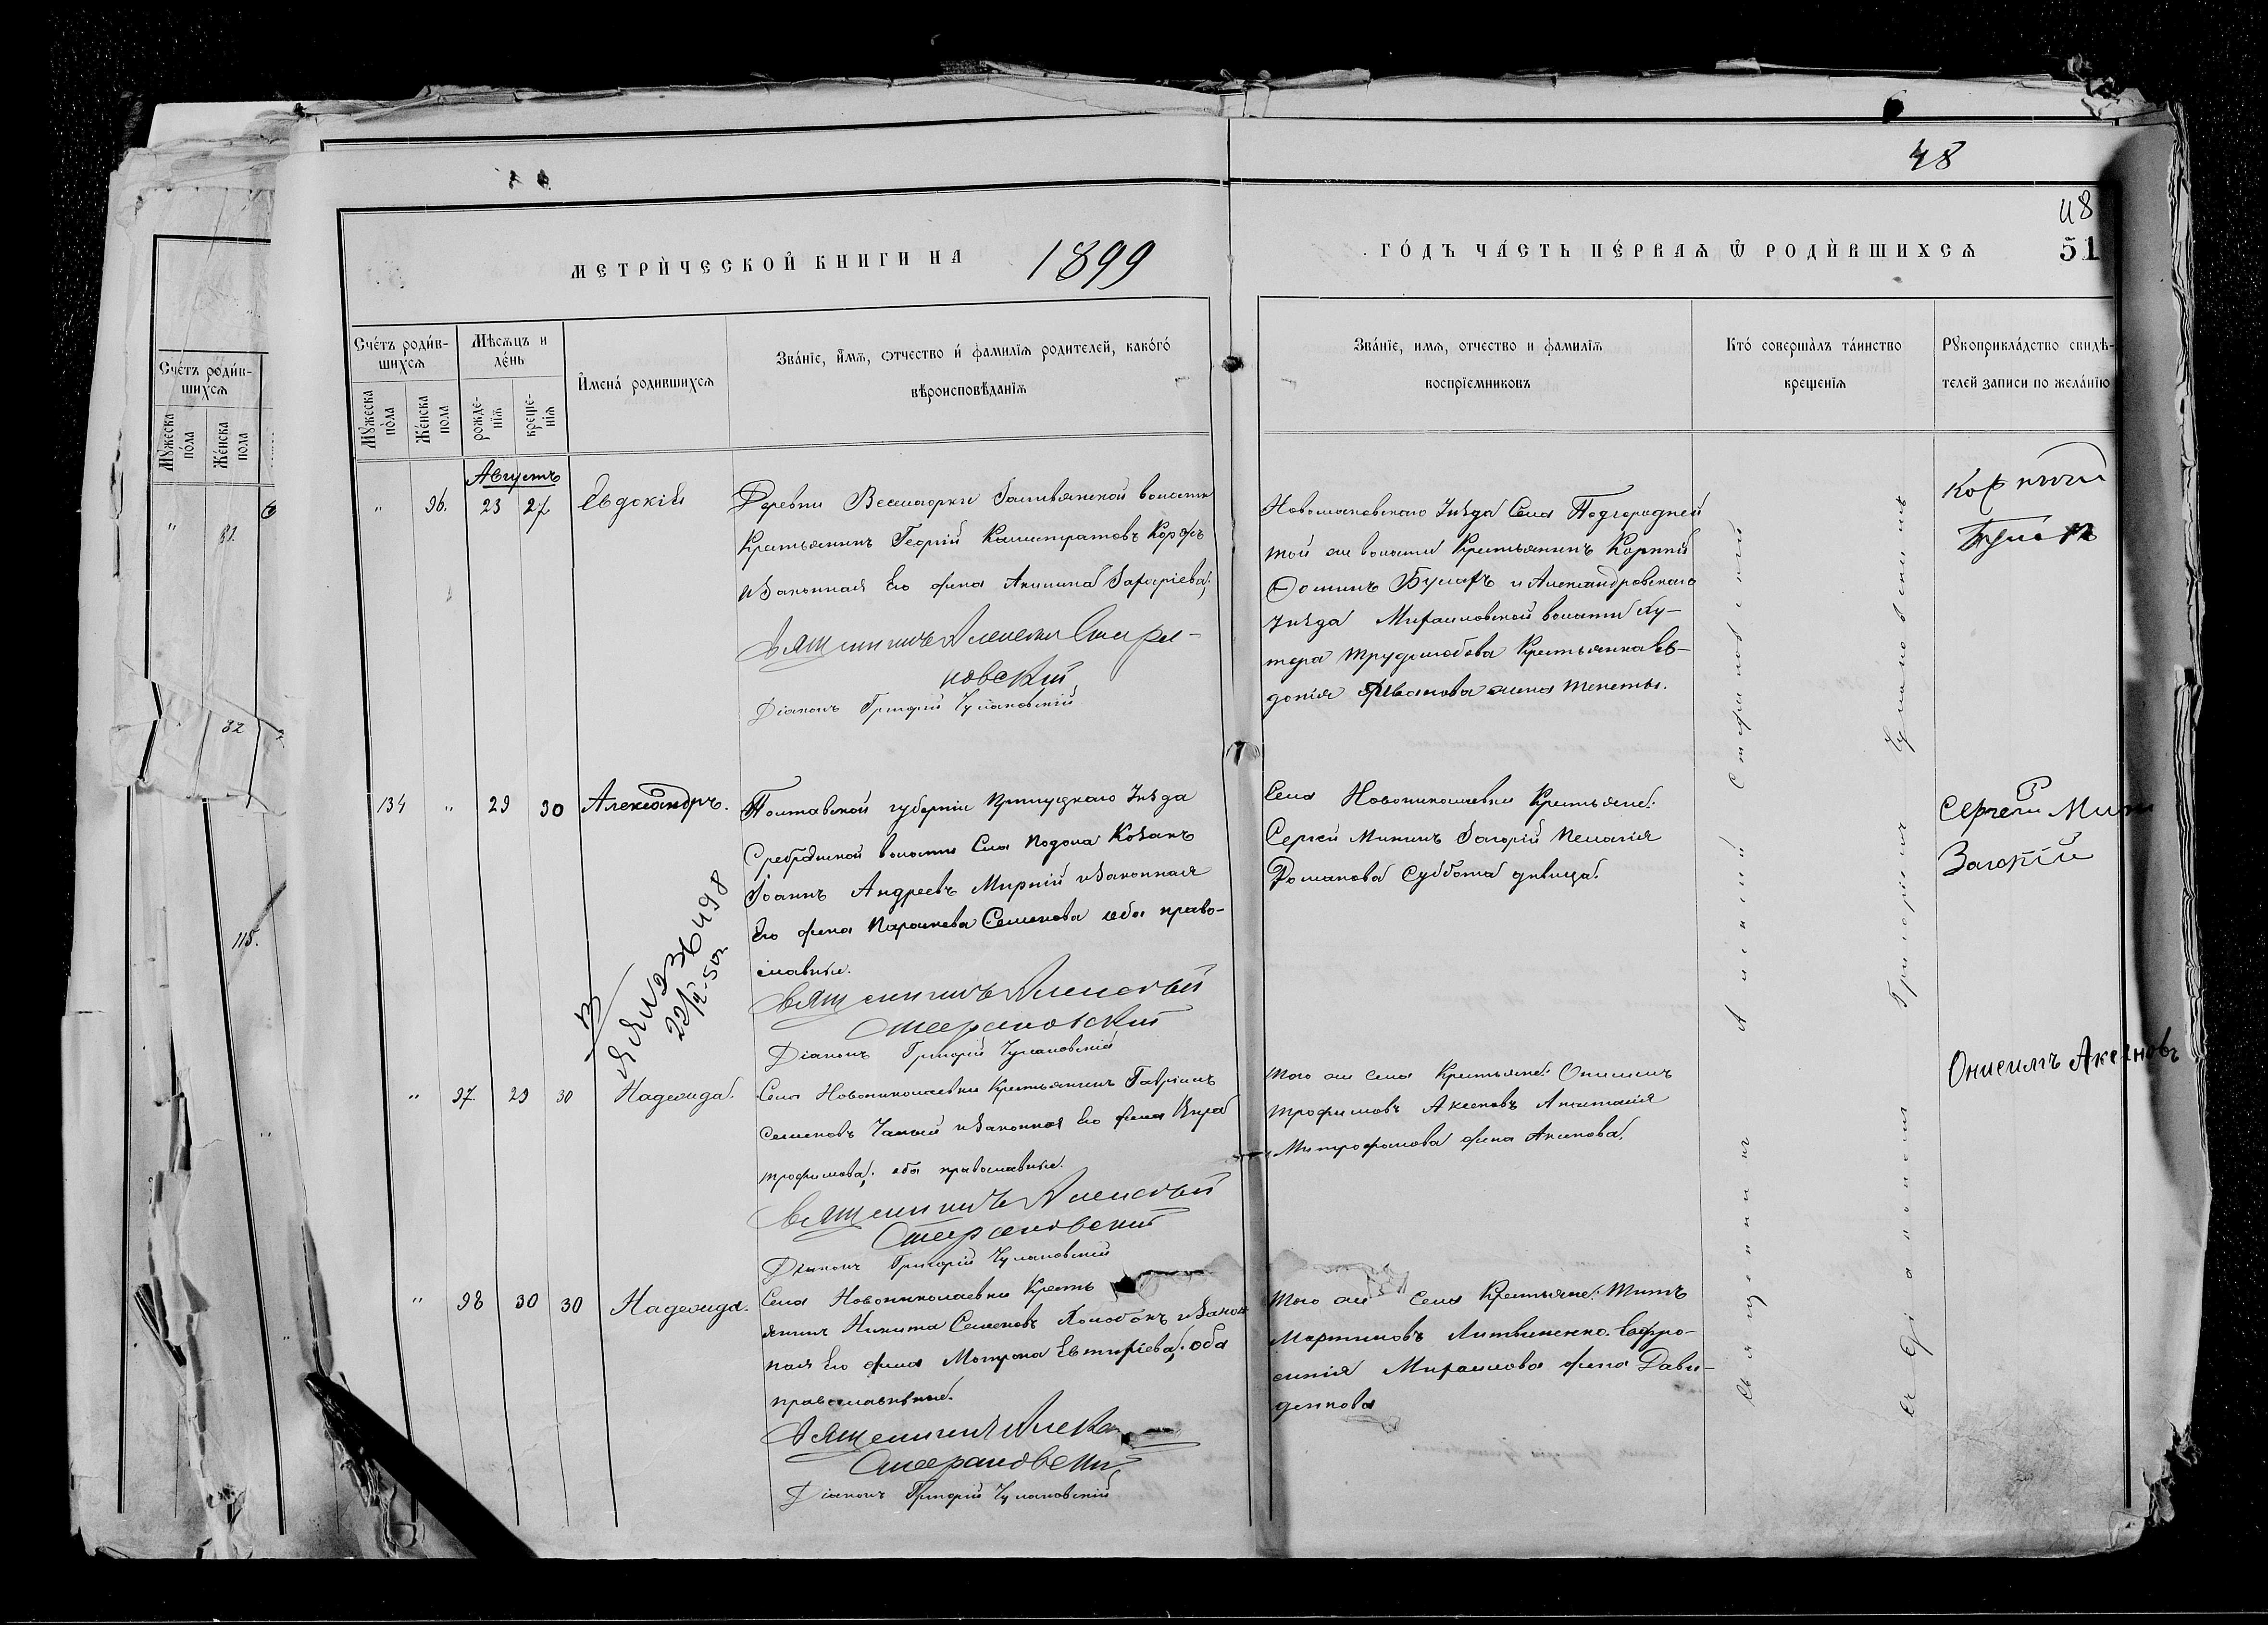 48
48
51
МЕТРИЧЕСКОЙ КНИГИ НА 1899
ГОДЪ ЧАСТЬ ПЕРВАЯ Ѿ РОДИВШИХСЯ
Счетъ родив-
шихся
Мужеска
пола
Женска
пола
Мѣсяцъ и
день
рожде-
нія
креще-
нія
Имена родившихся
Званіе, имя, отчество и фамилія родителей, какого
вѣроисповѣданія
Званіе, имя, отчество и фамилія
воспріемниковъ
Кто совершалъ таинство
крещенія
Рукоприкладство свидѣ-
телей записи по желанію
Счетъ родив-
шихся
Мужеска
пола
Женска
пола
" 81.
82
115.
Августъ
" 96. 23 27 Евдокія
Деревни волости
Крестьянинъ Георгій Калистратовъ Коржъ
и Законная Его жена Акилина Захаріева,
Священникъ Алексій Стефа-
новскій
Діаконъ Григорій Чумаковскій
Новомосковскаго Уѣзда Села Подгородней
той же волости Крестьянинъ Корній
Фоминъ и Александровскаго
Уѣзда Михайловской волости Ху-
тора Трудолюбова Крестьянка Ев-
докія Иванова жена
Корній
134 " 29 30 Александръ.
Полтавской губерніи Прилуцкаго Уѣзда
волости Села Подола Козакъ
Іоаннъ Андреевъ Мирній и Законная
Его жена Параскева Семенова оба право-
славные.
Священникъ Алексій
Стефановскій
Діаконъ Григорій Чумаковскій
Села Новониколаевки Крестьяне:
Сергѣй Мининъ Загорій Пелагія
Романова Суббота дѣвица.
Сергей
Загорій
" 97. 29 30 Надежда.
Села Новониколаевки Крестьянинъ Гавріилъ
Семеновъ и Законная Его жена Вѣра
Трофимова, оба православные.
Священникъ Алексій
Стефановскій
Діаконъ Григорій Чумаковскій
Того же села Крестьяне: Онисимъ
Трофимовъ Аксеновъ Анастасія
Митрофанова жена Аксенова.
Онисимъ Аксеновъ
" 98 30 30 Надежда.
Села Новониколаевки Кресть
янинъ Никита Семеновъ и Закон
ная Его жена Матрона Евтихіева, оба
православные.
Священникъ
Стефановскій
Діаконъ Григорій Чумаковскій
Того же Села Крестьяне: Титъ
Мартиновъ Литвиненко. Евфро-
синія Михаилова жена Дави-
денкова
Священникъ Алексій Стефановскій
съ діакономъ Григоріемъ Чумаковскимъ